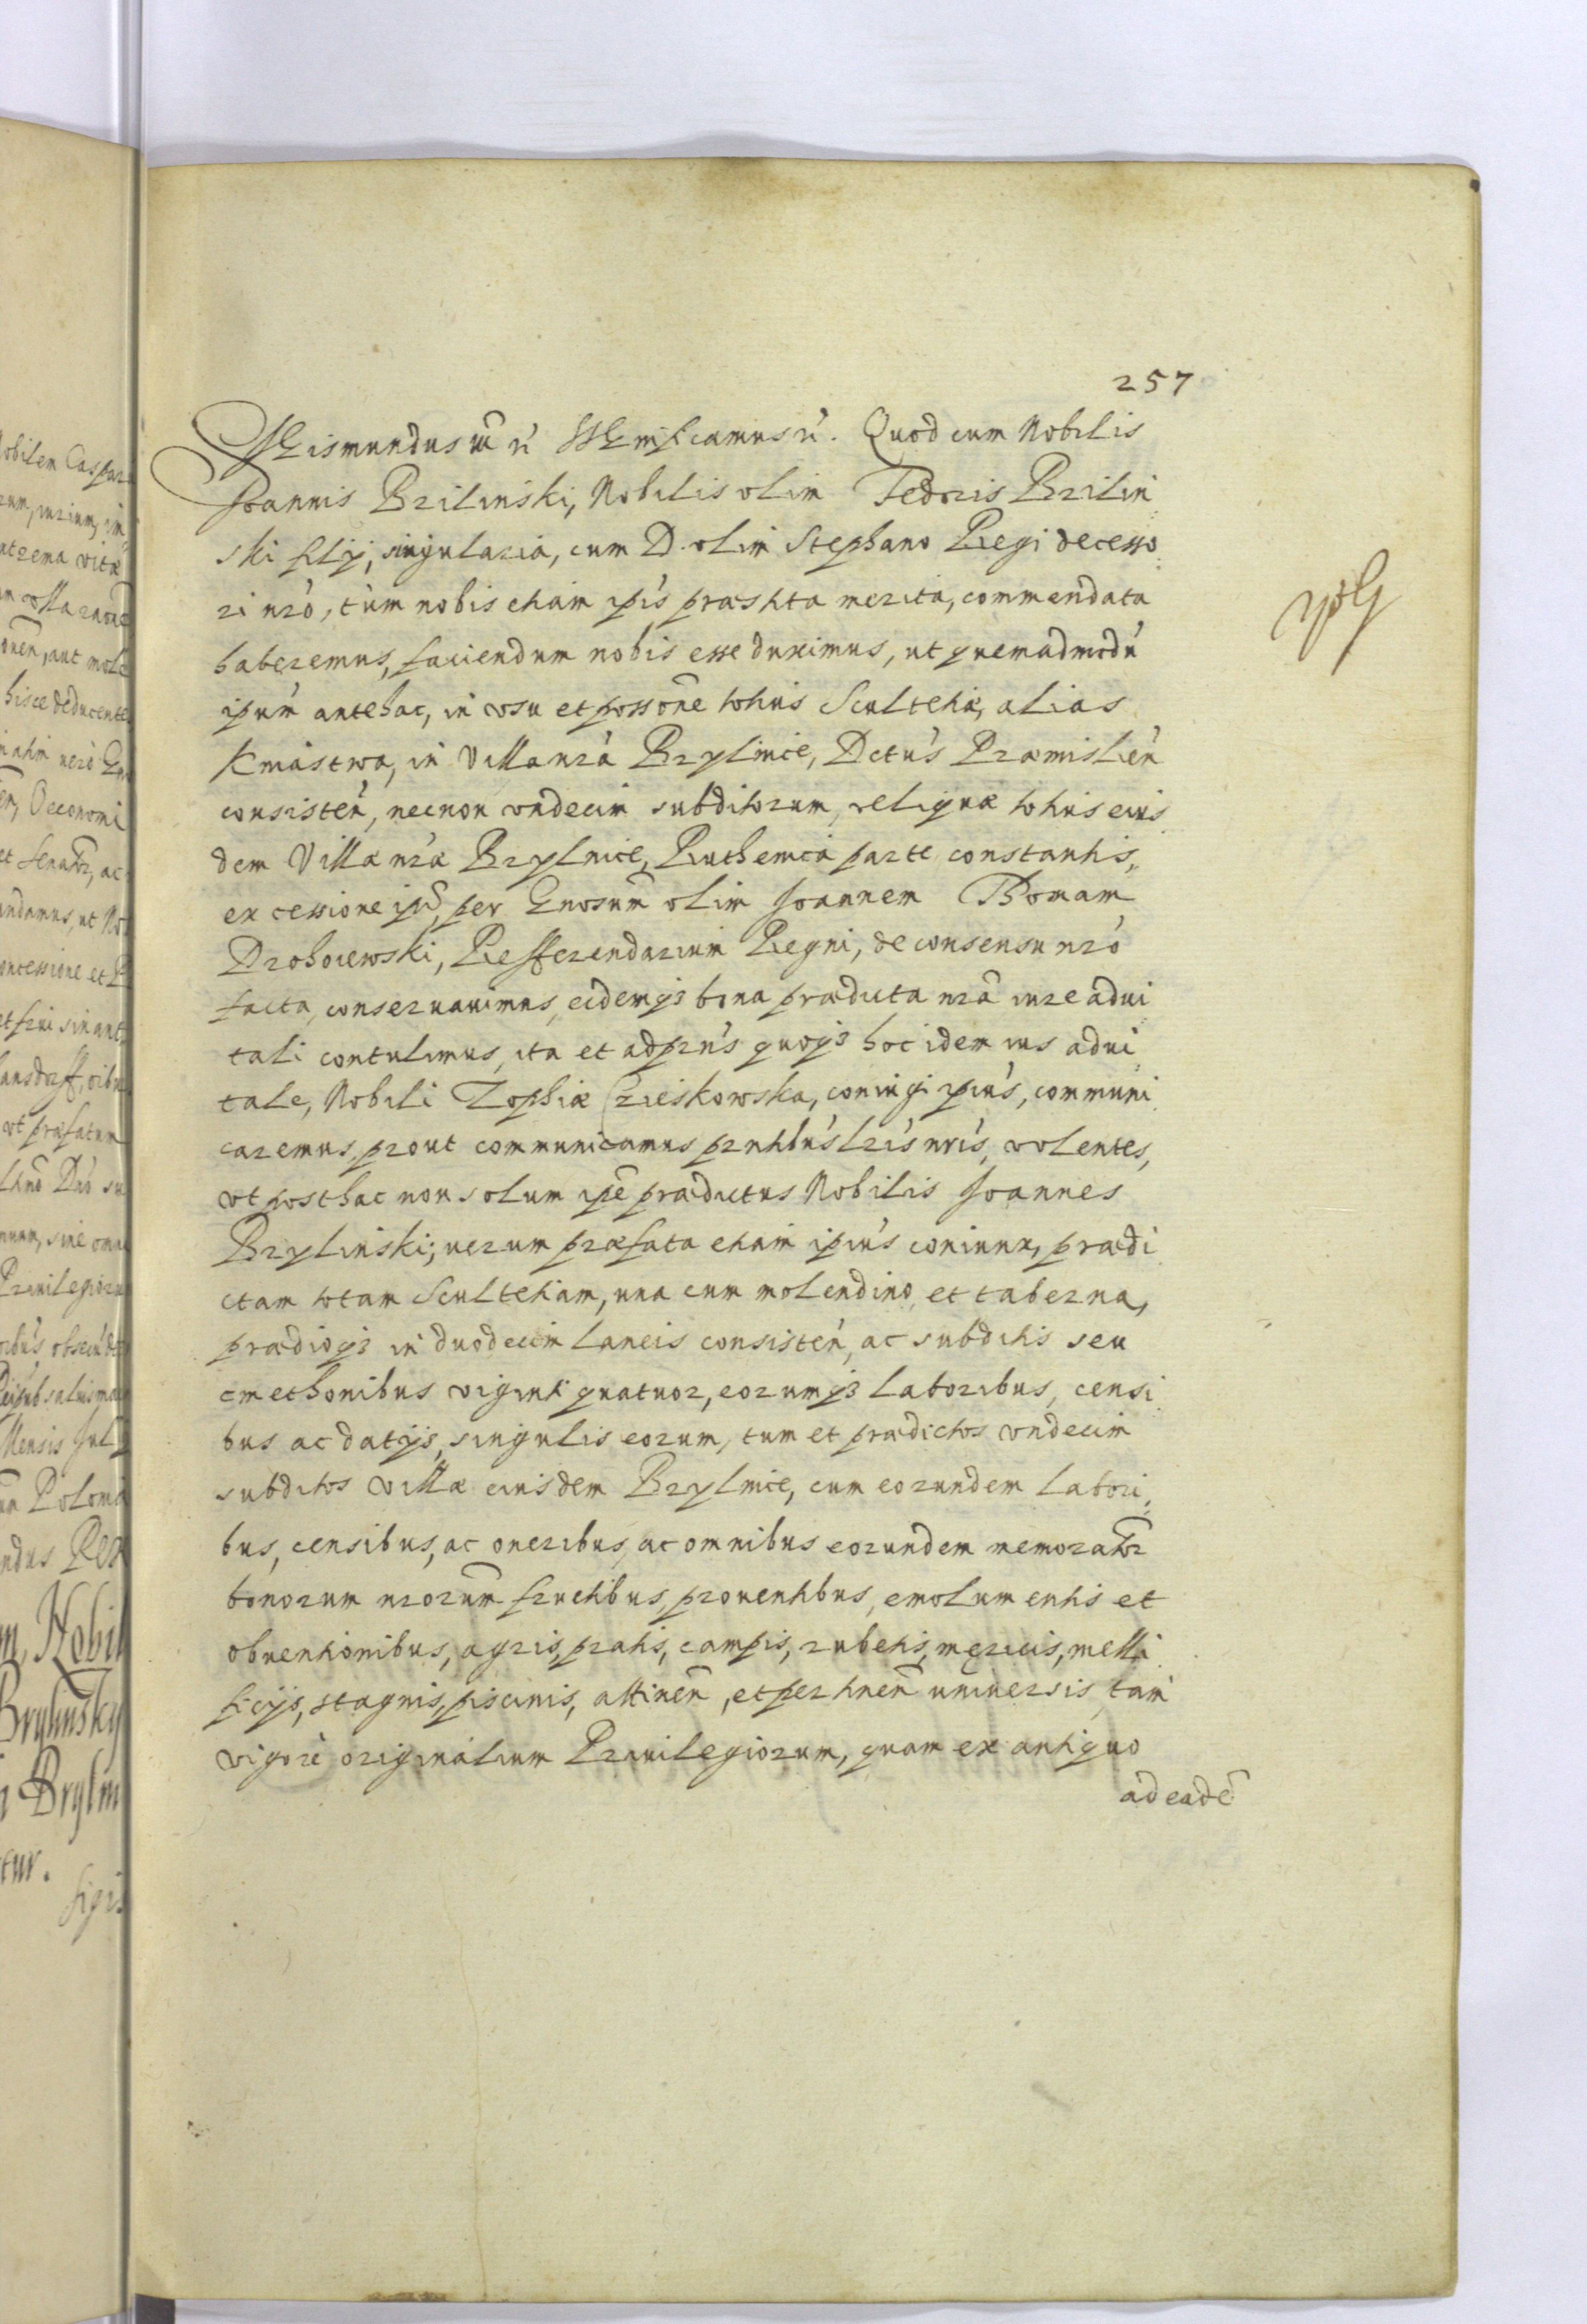 257
Sigismundus III etc. Significamus etc. Quod cum Nobilis
Joannis Brilinski, Nobilis olim Fedoris Brilin
ski filij, singularia, cum D. olim Stephano Regi decesso
ri nro, tùm nobis etiam ipis præstita merita, commendata
haberemus, faciendum nobis esse duximus, ut quemadmodu
ipum antehac, in vsu et possone totius Scultetiæ, alias
Kmiastwa, in Villa nra Brylince, Dctus Præmislien
consisten, necnon vndecim subditorum, reliquæ totius eius
dem Villæ nræ Brylnice, Ruthenica parte constantis,
ex cessione ipi per Gnosum olim Joannem Thomam
Drohoiewski, Refferendarium Regni, de consensu nro
facta, conseruauimus, eidemq3 bona prædicta nra iure adui
tali contulimus, ita et adprns quoq3 hoc idem ius adui
tale, Nobili Zophiæ Czieskowska, coniugi ipius, communi
caremus, prout communicamus prntibus lris nris, volentes,
vt posthac non solum ipe prædictus Nobilis Joannes
Brylinski; uerum præfata etiam ipius coniunx, prædi
ctam totam Scultetiam, una cum molendino et taberna,
prædioq3 in duodecim Laneis consisten, ac subditis seu
cmethonibus viginti quatuor, eorumq3 laboribus, censi
bus ac datijs, singulis eorum, tum et prædictos vndecim
subditos villæ eiusdem Brylnice, cum eorundem labori
bus, censibus, ac oneribus, ac omnibus eorundem memorator
bonorum nrorum fructibus, prouentibus, emolumentis et
obuentionibus, agris, pratis, campis, rubetis, mericis, melli
ficijs, stagnis, piscinis, attinen, et pertinen uniuersis, tam
vigore originalium Priuilegiorum, quam ex antiquo
ad eade